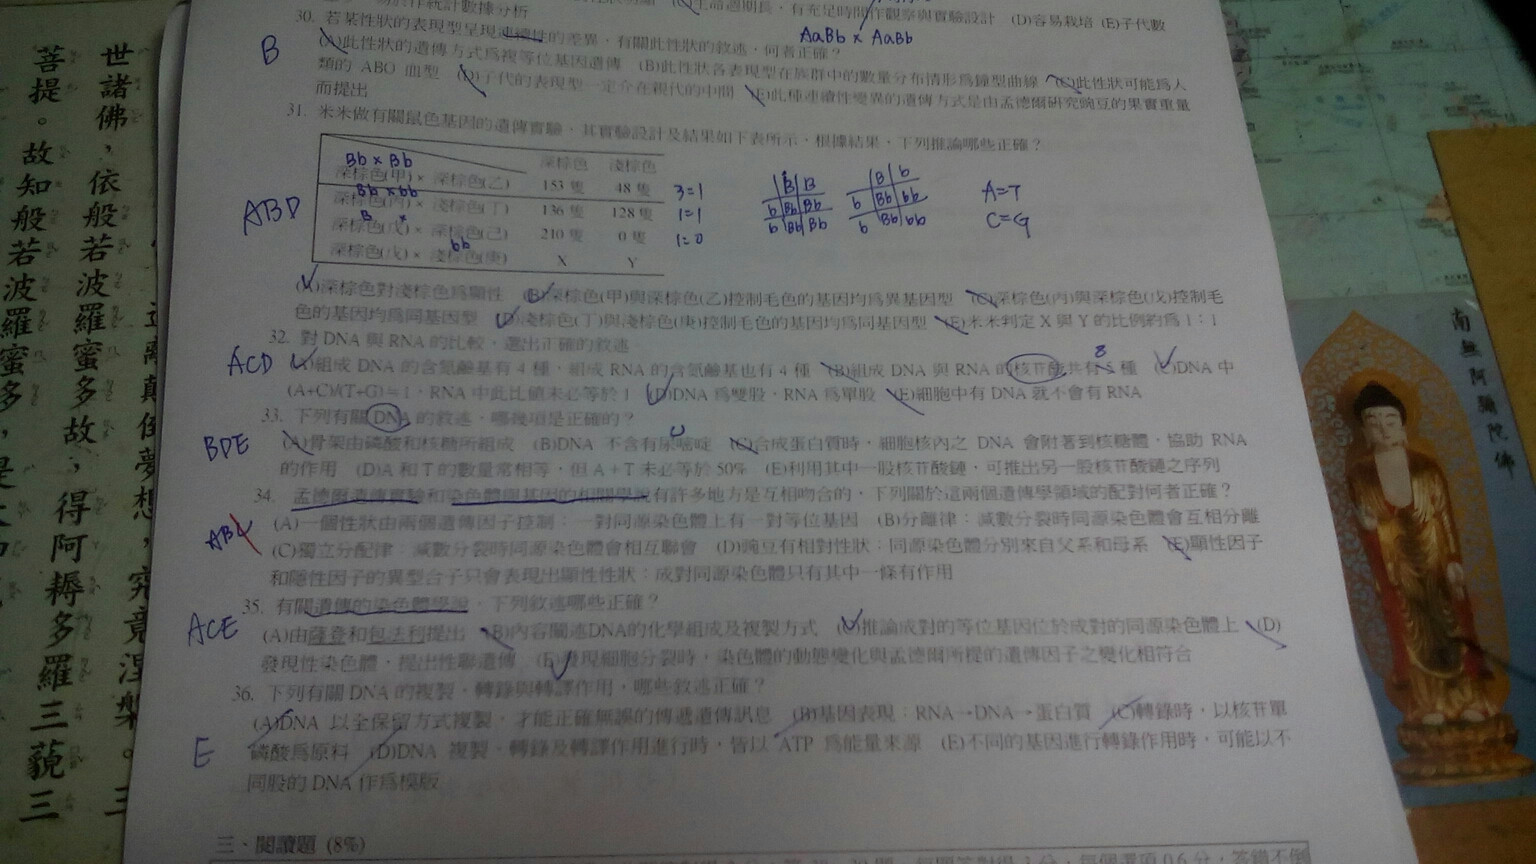 世諸佛，依般若波羅蜜多故，得阿耨多羅三藐三
菩提。故知般若波羅蜜多，是大神
遠離顛倒夢想，究竟涅槃。
生命週期長，有充足時間作觀察與實驗設計 (D)容易栽培 (E)子代數
易於作統計數據分析
AaBb × AaBb
30. 若某性狀的表現型呈現連續性的差異，有關此性狀的敘述，何者正確？
B
(A)此性狀的遺傳方式為複等位基因遺傳 (B)此性狀各表現型在族群中的數量分布情形為鐘型曲線 (C)此性狀可能為人
類的 ABO 血型 (D)子代的表現型一定介在親代的中間 (E)此種連續性變異的遺傳方式是由孟德爾研究豌豆的果實重量
而提出
31. 米米做有關鼠色基因的遺傳實驗，其實驗設計及結果如下表所示，根據結果，下列推論哪些正確？
ABD
深棕色 淺棕色
Bb × Bb
深棕色(甲) × 深棕色(乙) 153 隻 48 隻 3=1
Bb × bb
深棕色(丙) × 淺棕色(丁) 136 隻 128 隻 1=1
B ×
深棕色(戊) × 深棕色(己) 210 隻 0 隻 1=0
bb
深棕色(戊) × 淺棕色(庚) X Y
B B
b Bb Bb
b Bb Bb
B b
b Bb bb
b Bb bb
A=T
C=G
(A)深棕色對淺棕色為顯性 (B)深棕色(甲)與深棕色(乙)控制毛色的基因均為異基因型 (C)深棕色(丙)與深棕色(戊)控制毛
色的基因均為同基因型 (D)淺棕色(丁)與淺棕色(庚)控制毛色的基因均為同基因型 (E)米米判定 X 與 Y 的比例約為 1：1
32. 對 DNA 與 RNA 的比較，選出正確的敘述
ACD
(A)組成 DNA 的含氮鹼基有 4 種，組成 RNA 的含氮鹼基也有 4 種 (B)組成 DNA 與 RNA 的核苷酸共有 5 種 (C)DNA 中
8
(A+C)/(T+G)＝1，RNA 中此比值未必等於 1 (D)DNA 為雙股，RNA 為單股 (E)細胞中有 DNA 就不會有 RNA
33. 下列有關 DNA 的敘述，哪幾項是正確的？
BDE
(A)骨架由磷酸和核糖所組成 (B)DNA 不含有尿嘧啶 (C)合成蛋白質時，細胞核內之 DNA 會附著到核糖體，協助 RNA
U
的作用 (D)A 和 T 的數量常相等，但 A＋T 未必等於 50% (E)利用其中一股核苷酸鏈，可推出另一股核苷酸鏈之序列
34. 孟德爾遺傳實驗和染色體與基因的相關學說有許多地方是互相吻合的，下列關於這兩個遺傳學領域的配對何者正確？
AB
(A)一個性狀由兩個遺傳因子控制：一對同源染色體上有一對等位基因 (B)分離律：減數分裂時同源染色體會互相分離
(C)獨立分配律：減數分裂時同源染色體會相互聯會 (D)豌豆有相對性狀：同源染色體分別來自父系和母系 (E)顯性因子
和隱性因子的異型合子只會表現出顯性性狀：成對同源染色體只有其中一條有作用
35. 有關遺傳的染色體學說，下列敘述哪些正確？
ACE
(A)由薩登和包法利提出 (B)內容闡述DNA的化學組成及複製方式 (C)推論成對的等位基因位於成對的同源染色體上 (D)
發現性染色體，提出性聯遺傳 (E)發現細胞分裂時，染色體的動態變化與孟德爾所提的遺傳因子之變化相符合
36. 下列有關 DNA 的複製、轉錄與轉譯作用，哪些敘述正確？
E
(A)DNA 以全保留方式複製，才能正確無誤的傳遞遺傳訊息 (B)基因表現：RNA→DNA→蛋白質 (C)轉錄時，以核苷單
磷酸為原料 (D)DNA 複製、轉錄及轉譯作用進行時，皆以 ATP 為能量來源 (E)不同的基因進行轉錄作用時，可能以不
同股的 DNA 作為模版
三、閱讀題 (8%)
南無阿彌陀佛